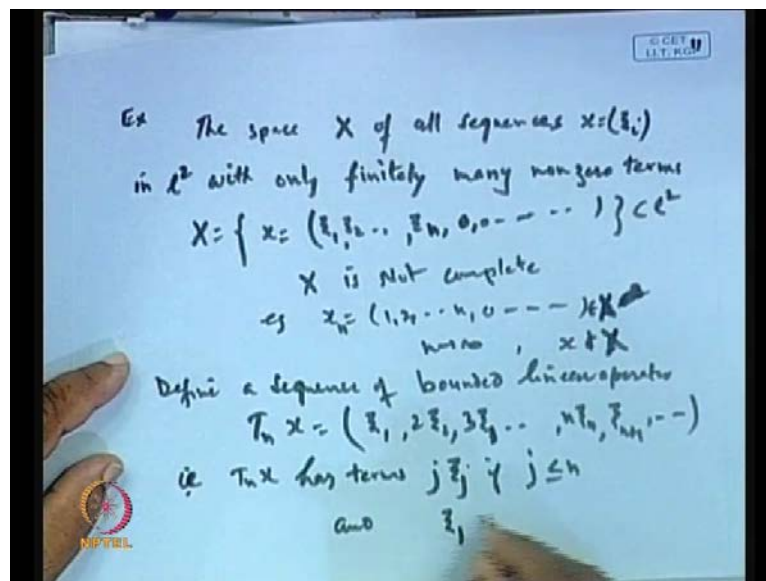 © CET
I.I.T. KGP
Ex The space X of all sequences x=(ξi)
in l² with only finitely many nonzero terms
X = { x = (ξ1, ξ2 .., ξn, 0, 0 - - - - - ) } ⊂ l²
X is Not complete
eg xn = (1, 2, .. n, 0 - - - - ) ∈ X
n→∞ , x ∉ X
Define a sequence of bounded linear operator
Tn x = (ξ1, 2ξ2, 3ξ3 .. , nξn, ξn+1, - -)
ie Tn x has terms j ξj if j ≤ n
and ξj
NPTEL